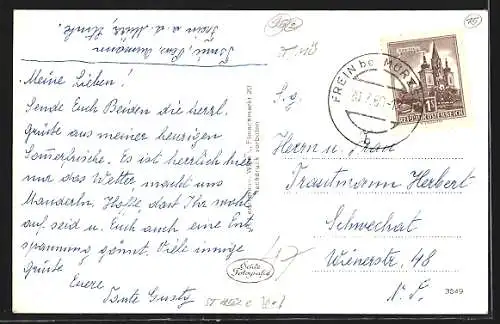 Meine Lieben!
Sende Euch Beiden die herrl.
Grüße aus meiner heurigen
Sommerfrische. Es ist herrlich hier
nur das Wetter, macht uns
Manderln. Hoffe, dass Ihr wohl
auf seid u. Euch auch eine Ent
spannung gönnt. Viele innige
Grüße
Euere
Tante Gusty
FREIN bei MÜRZ
REPUBLIK ÖSTERREICH
S. g.
Herrn u. Frau
Trautmann Herbert
Schwechat
Wienerstr. 48
N. Ö.
3849
Nachdruck verboten